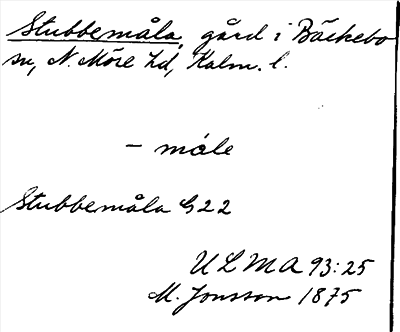 Stubbemåla, gård i Bäckebo
sn, N. Möre hd, Kalm. l.
- måle
Stubbemåla G22
ULMA 93:25
M. Jonsson 1875